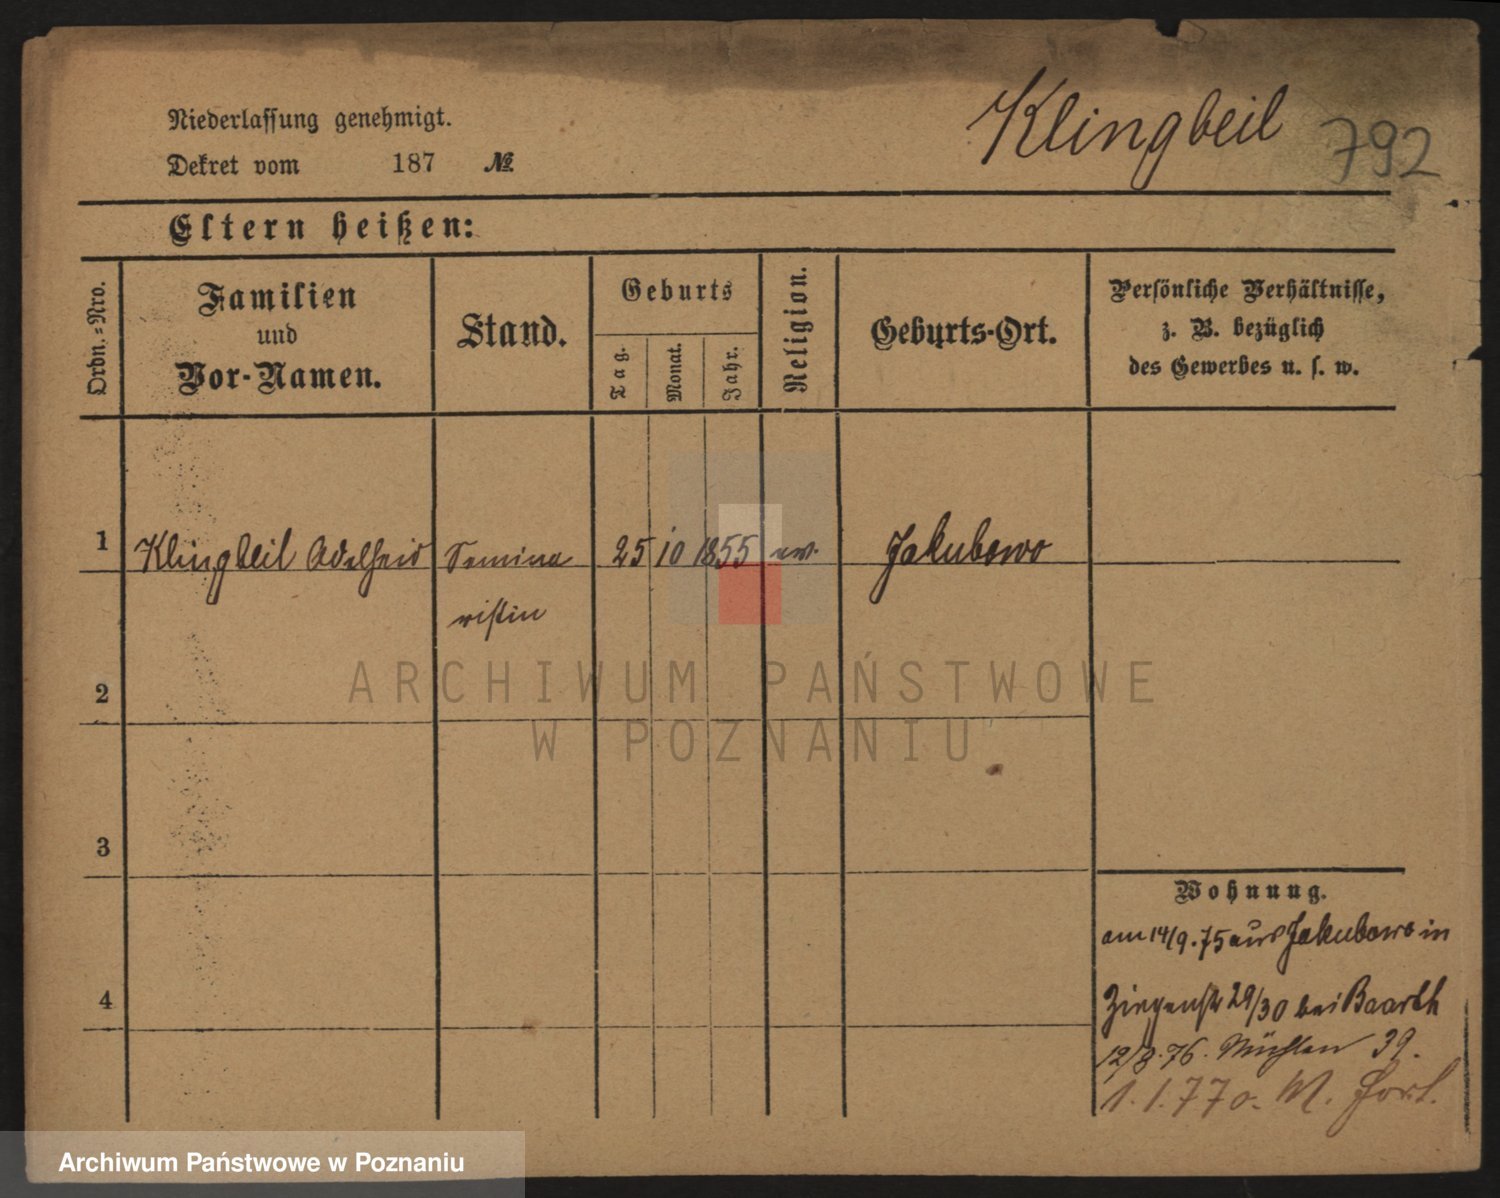 Niederlassung genehmigt.
Klingbeil 792
Dekret vom 187 №
Eltern heißen:
Ordn.-Nro.
Familien
und
Vor-Namen.
Stand.
Geburts
Tag.
Monat.
Jahr.
Religion.
Geburts-Ort.
Persönliche Verhältnisse,
z. B. bezüglich
des Gewerbes u. s. w.
1 Klingbeil Adelheid Semina 25 10 1855 ev. Jakubowo
ristin
2
ARCHIWUM PAŃSTWOWE
W POZNANIU
3
Wohnung.
am 14/9.75 aus Jakubowo in
4
Ziegenstr 29/30 bei Baarth
12/8.76. Mühlen 39.
1.1.77 o. M. fort.
Archiwum Państwowe w Poznaniu